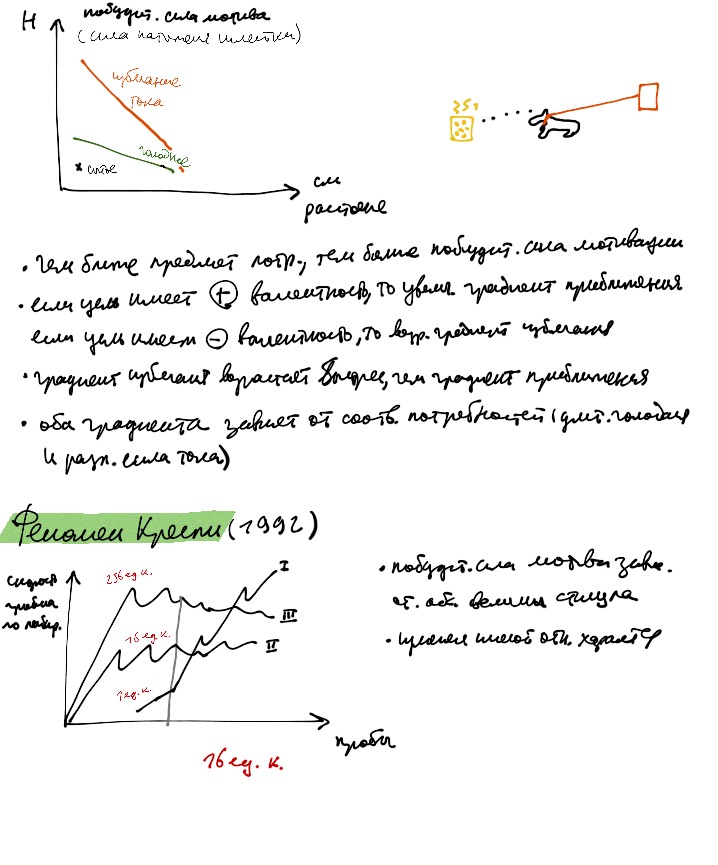 H
побудит. сила мотива
(сила натяжения шлейки)
избегание
тока
голодное
сытые
см
растояние
• чем ближе предмет потр., тем больше побудит. сила мотивации
• если цель имеет + валентность, то увелич. градиент приближения
если цель имеет - валентность, то возр. градиент избегания
• градиент избегания возрастает быстрее, чем градиент приближения
• оба градиента зависят от соотв. потребностей (длит. голодания
и разл. сила тока)
Феномен Креспи (1992)
скорость
пробега
по лабир.
256 ед. к.
16 ед. к.
1 ед. к.
I
III
II
пробы
16 ед. к.
• побудит. сила мотива завис.
от. объ. величины стимула
• имеет отн. характер